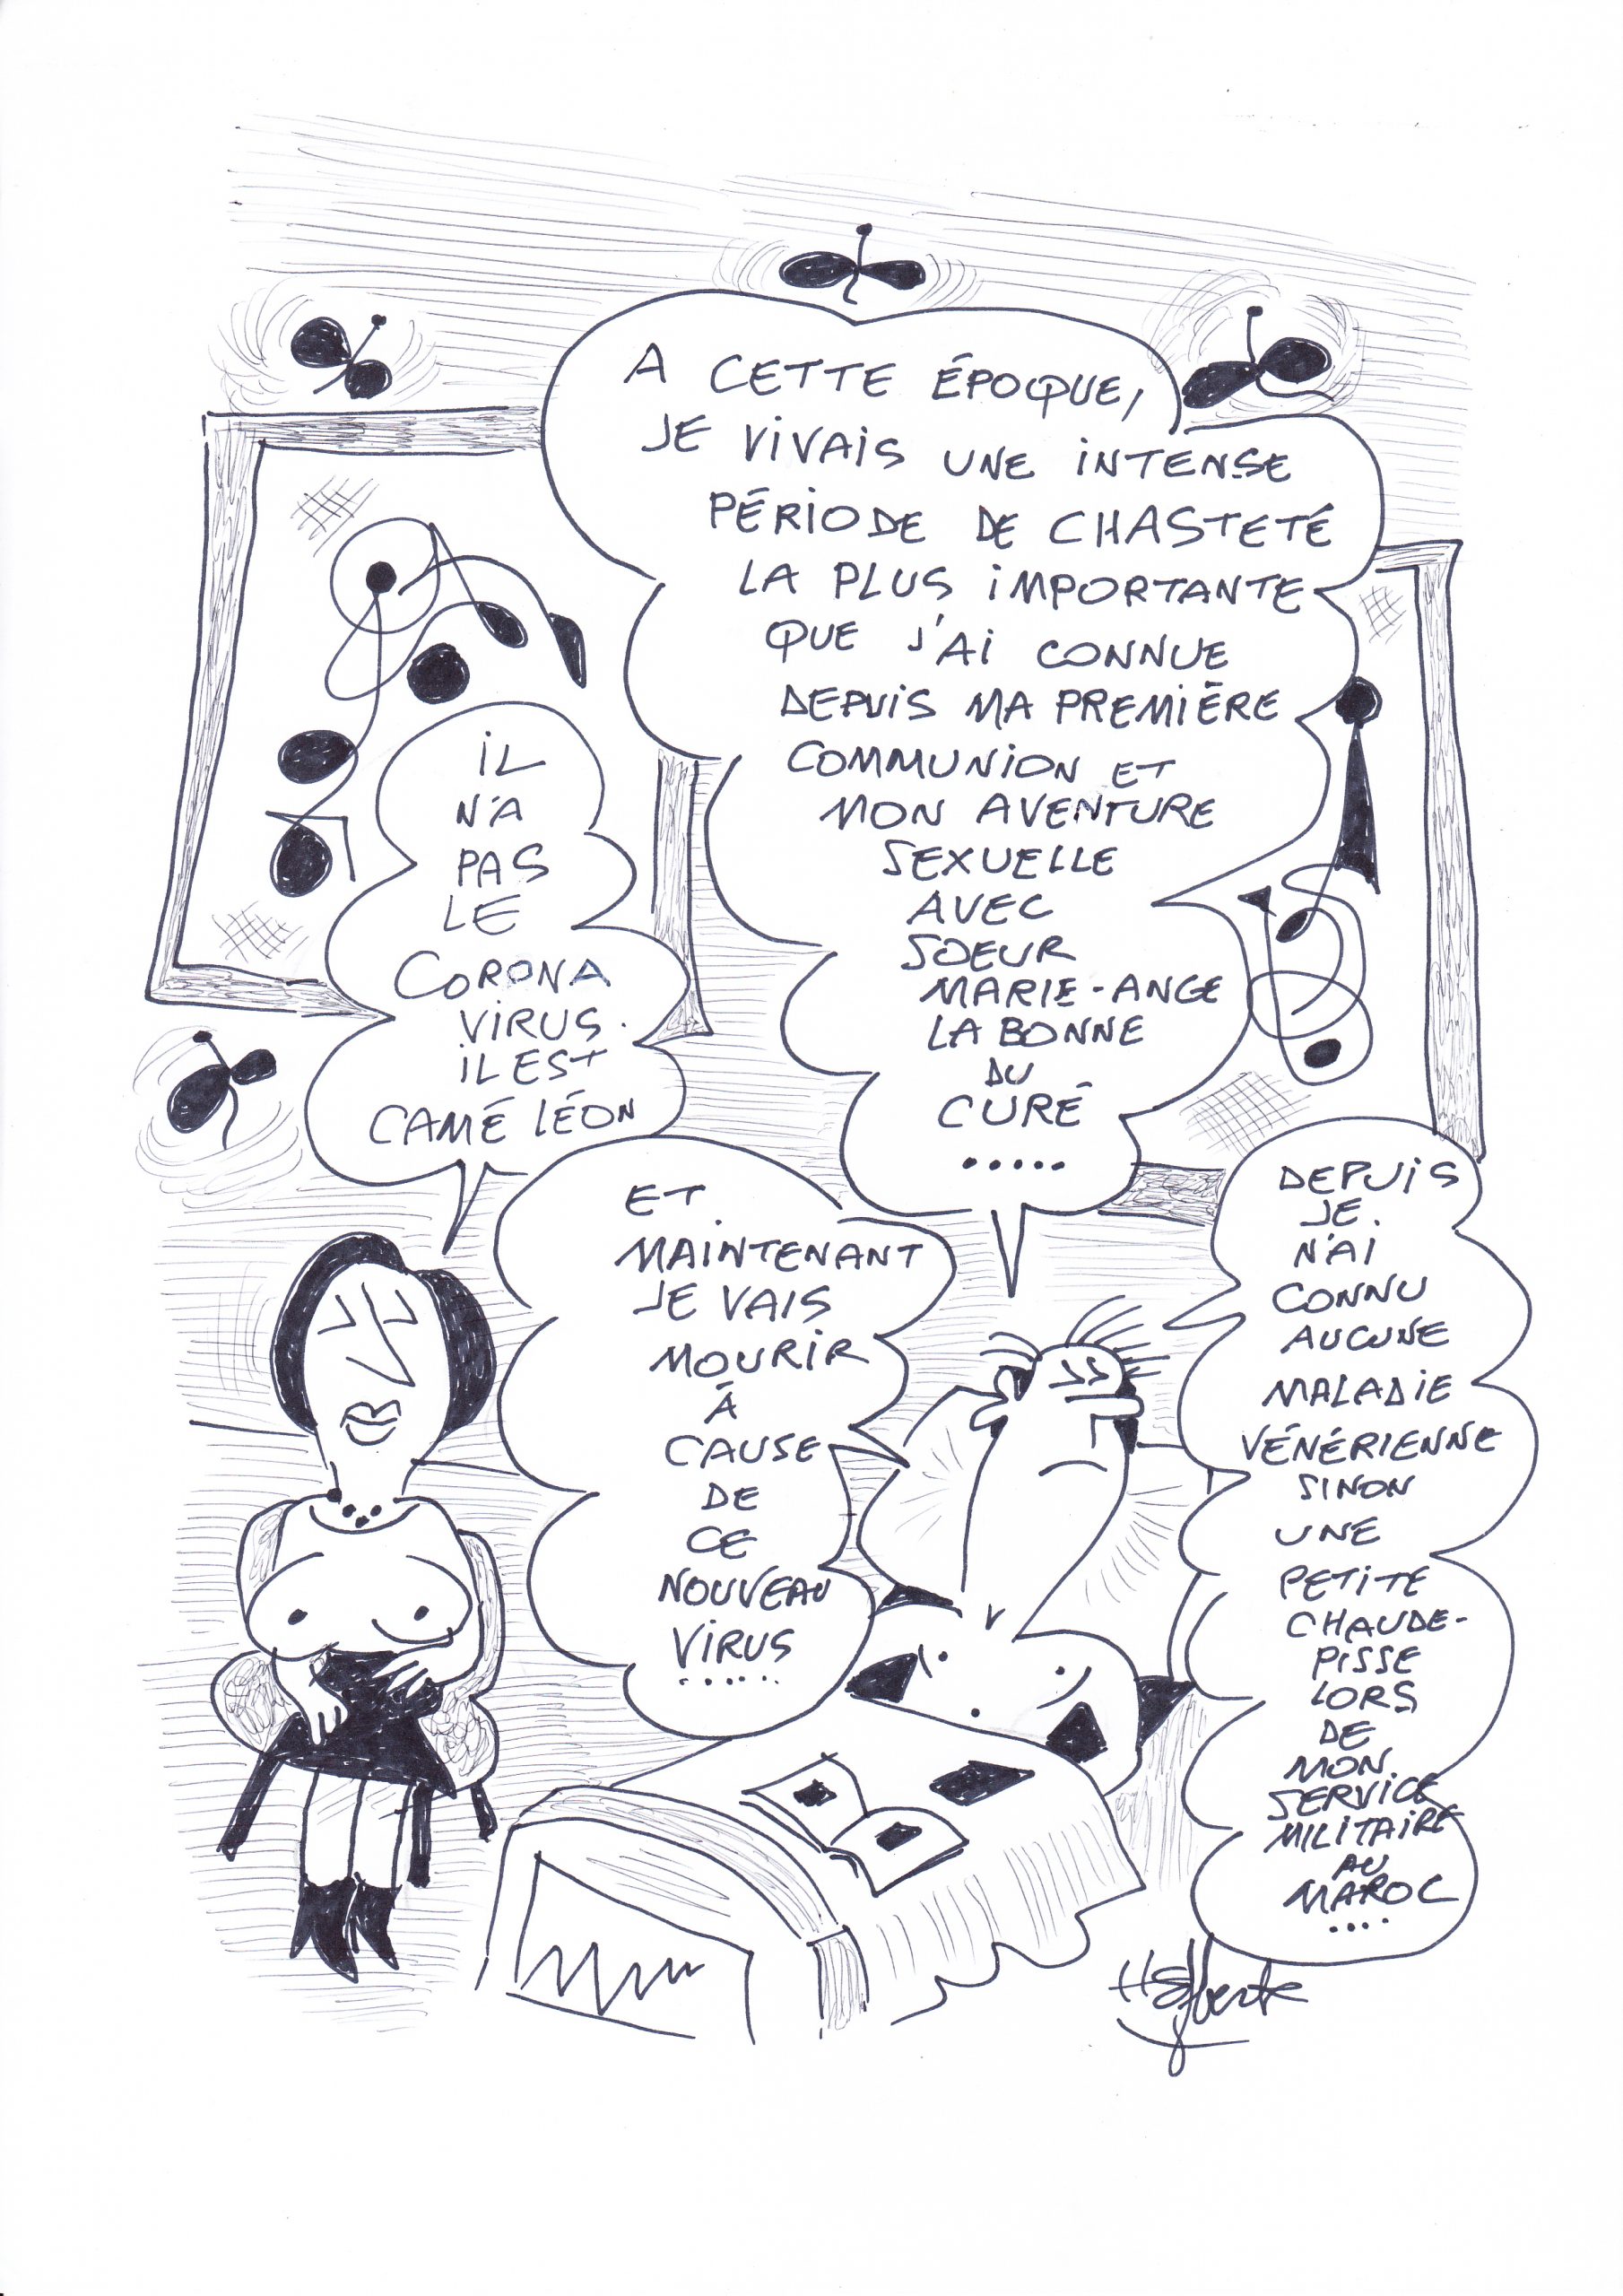 A CETTE ÉPOQUE,
JE VIVAIS UNE INTENSE
PÉRIODE DE CHASTETÉ
LA PLUS IMPORTANTE
QUE J'AI CONNUE
DEPUIS MA PREMIÈRE
COMMUNION ET
MON AVENTURE
SEXUELLE
AVEC
SOEUR
MARIE-ANGE
LA BONNE
DU
CURÉ
.....
IL
N'A
PAS
LE
CORONA
VIRUS.
IL EST
CAMÉ LÉON
ET
MAINTENANT
JE VAIS
MOURIR
À
CAUSE
DE
CE
NOUVEAU
VIRUS
.....
DEPUIS
JE
N'AI
CONNU
AUCUNE
MALADIE
VÉNÉRIENNE
SINON
UNE
PETITE
CHAUDE-
PISSE
LORS
DE
MON
SERVICE
MILITAIRE
AU
MAROC
....